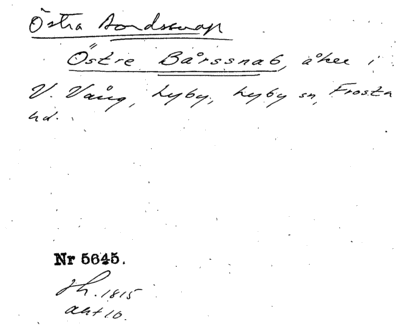 Östra
Östre Bårssnab, åker i
V. Vång, Lyby, Lyby sn, Frosta
hd.
Nr 5645.
Sk. 1815
akt 10.